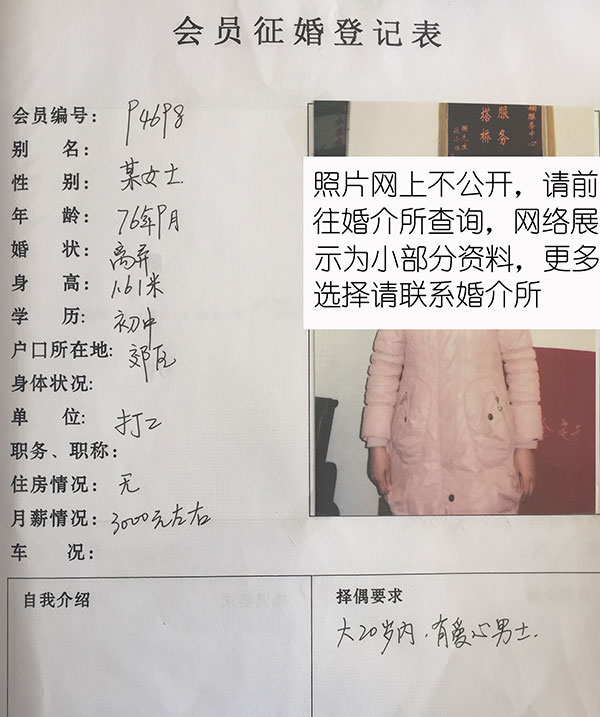 会员征婚登记表
会员编号: P4698
别 名:
性 别: 某女士
年 龄: 76年9月
婚 状: 离异
身 高: 1.61米
学 历: 初中
户口所在地: 郊区
身体状况:
单 位: 打工
职务、职称:
住房情况: 无
月薪情况: 3000元左右
车 况:
服务
搭桥
照片网上不公开，请前
往婚介所查询，网络展
示为小部分资料，更多
选择请联系婚介所
自我介绍
择偶要求
大20岁内.有爱心男士.